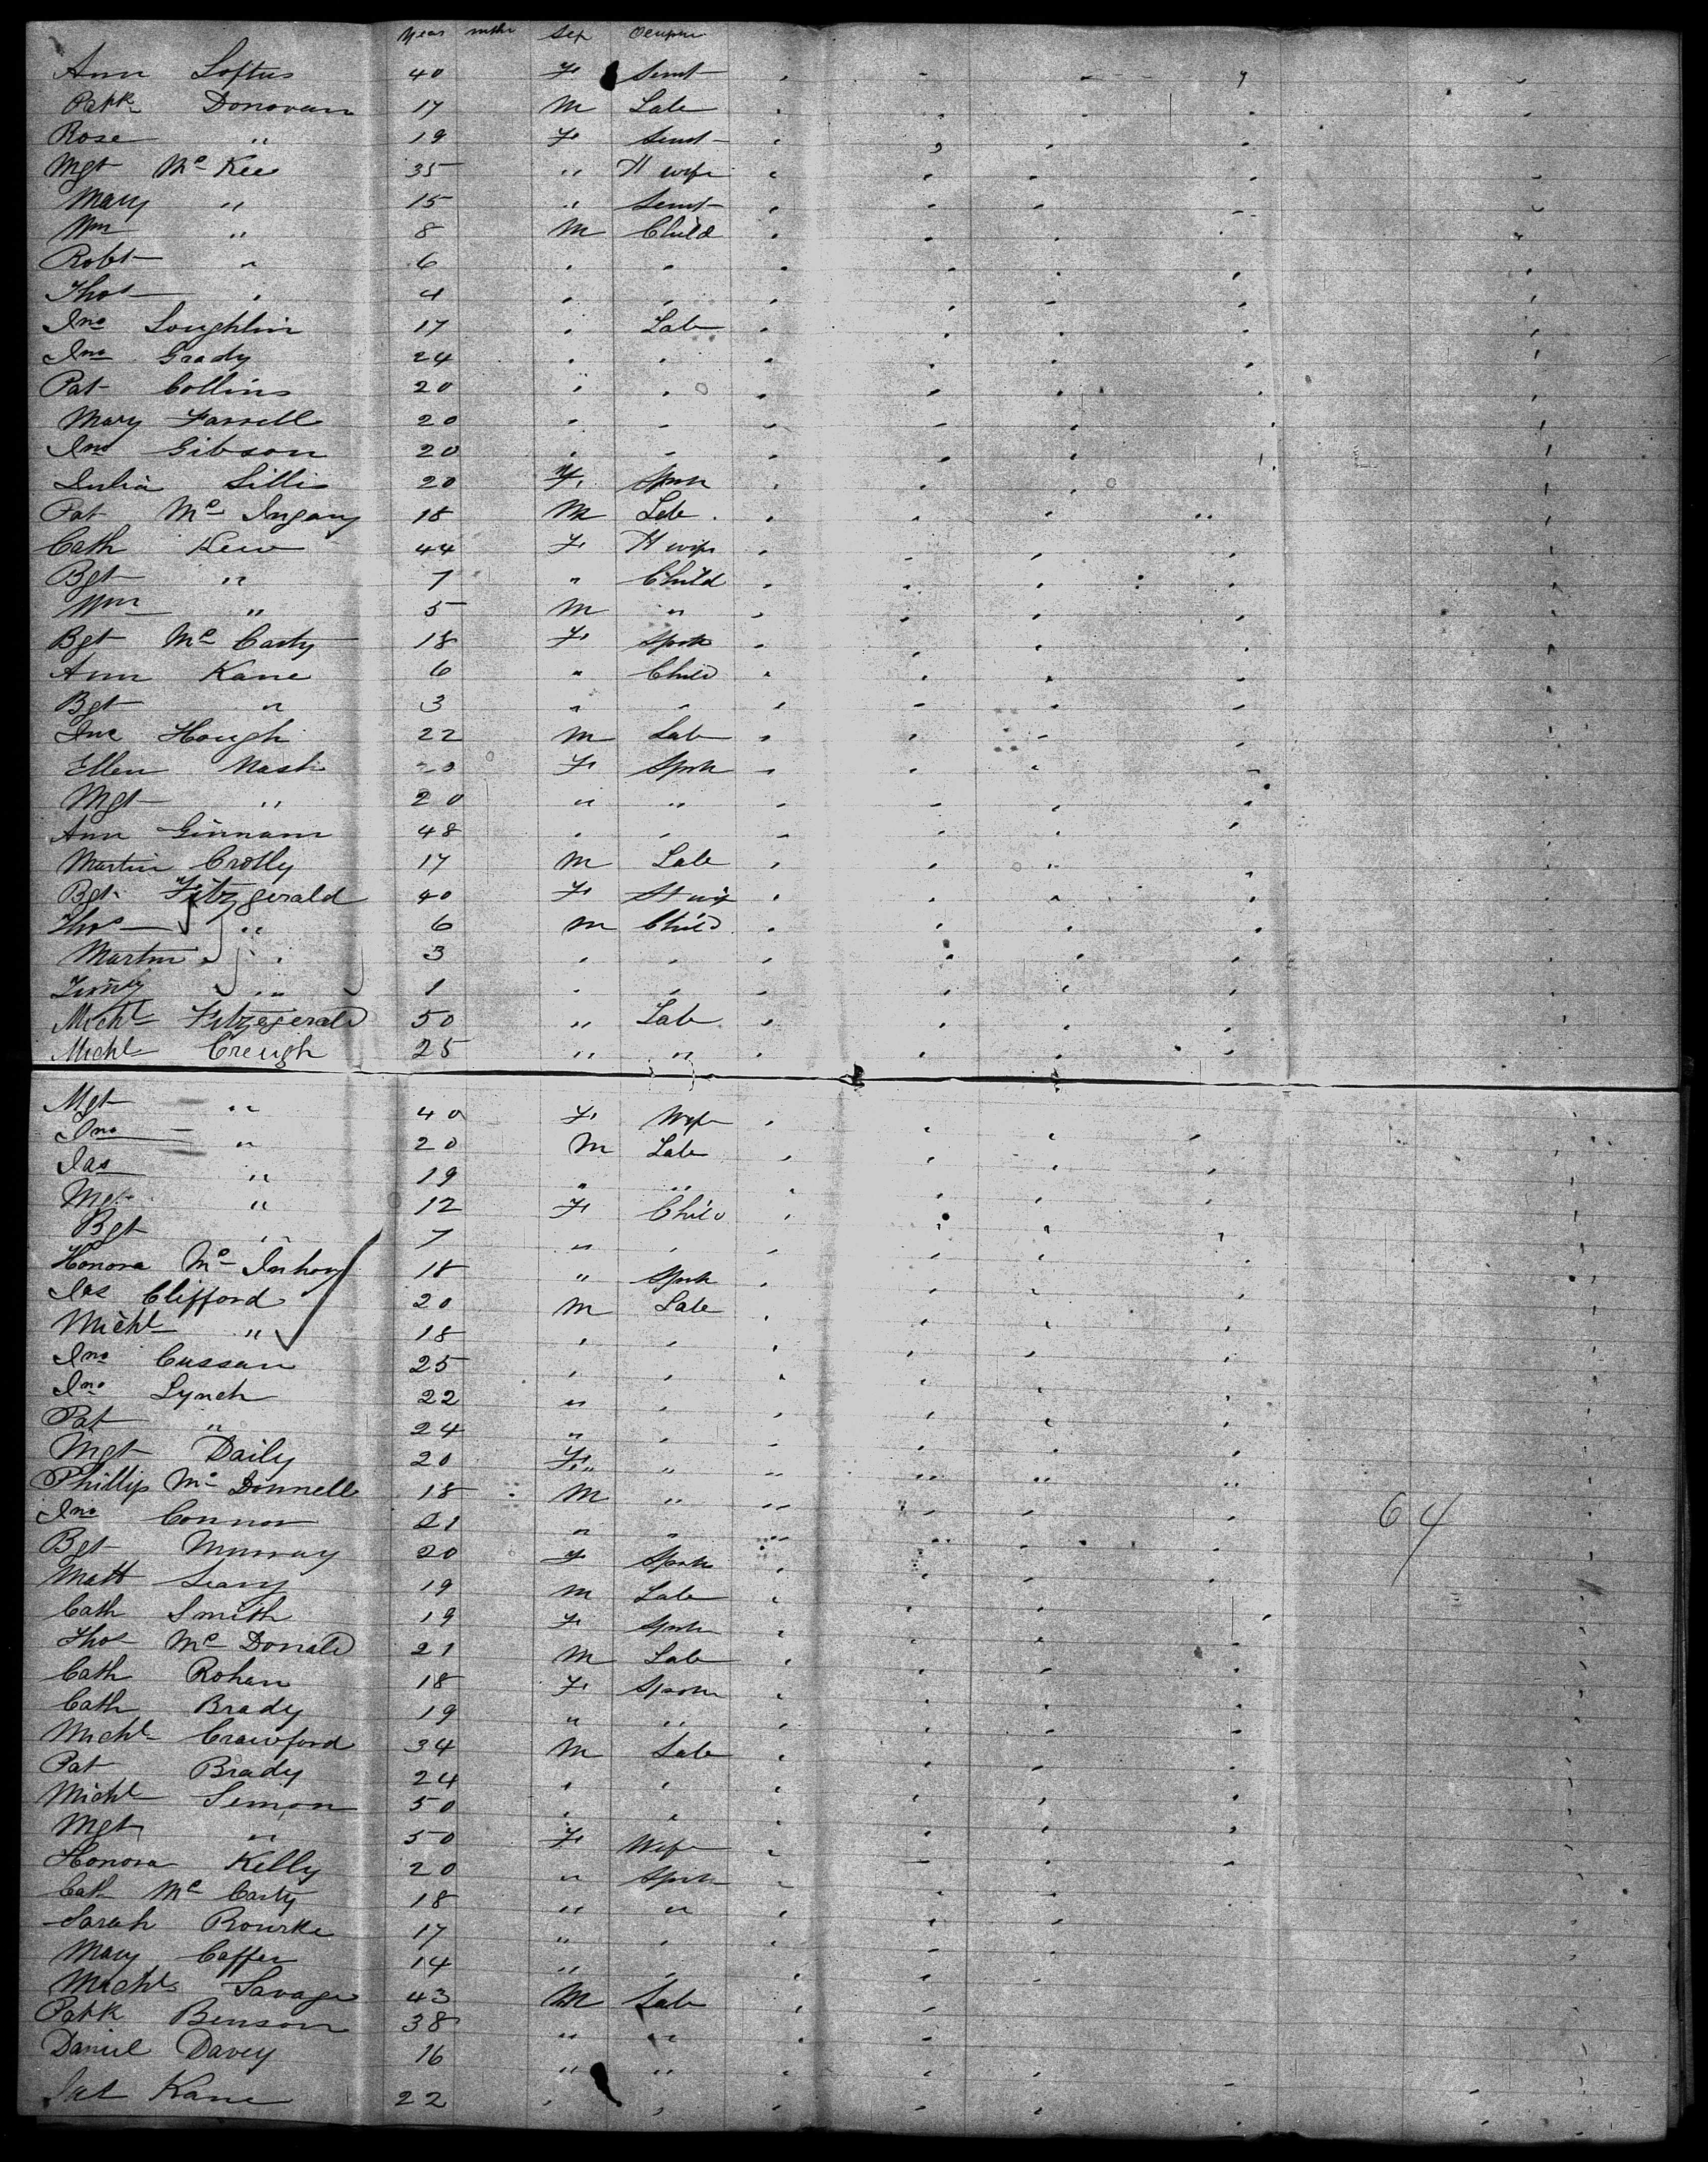 Year mths Sex Occupn
Ann Loftus 40 F Servt
Patk Donovan 17 M Lab
Rose " 19 F Servt
Mgt Mc Kee 35 " H wife
Mary " 15 " Servt
Wm " 8 M Child
Robt " 6 " "
Thos " 4 " "
Jno Loughlin 17 " Lab
Jno Grady 24 " "
Pat Collins 20 " "
Mary Farrell 20 " "
Jno Gibson 20 " "
Julia Lillis 20 F Spstr
Pat Mc 18 M Lab
Cath Kew 44 F H wife
Bgt " 7 " Child
Wm " 5 M "
Bgt Mc Carty 18 F Spstr
Ann Kane 6 " Child
Bgt " 3 " "
Jno Hough 22 M Lab
Ellen Nash 20 F Spstr
Mgt " 20 " "
Ann 48 " "
Martin Crolly 17 M Lab
Bgt Fitzgerald 40 F H wife
Thos " 6 M Child
Martin " 3 " "
" 1 " "
Michl Fitzgerald 50 " Lab
Michl Creugh 25 " "
Mgt " 40 F Wife
Jno " 20 M Lab
Jas " 19 " "
Mgt " 12 F Child
Bgt " 7 " "
Honora Mc 18 " Spstr
Jas Clifford 20 M Lab
Michl " 18 " "
Jno Cussan 25 " "
Jno Lynch 22 " "
Pat " 24 " "
Mgt Daily 20 F "
Phillip Mc Donnell 18 M "
Jno Connor 21 " " 64
Bgt Murray 20 F Spstr
Matt Leary 19 M Lab
Cath Smith 19 F Spstr
Thos Mc Donald 21 M Lab
Cath Rohan 18 F Spstr
Cath Brady 19 " "
Michl Crawford 34 M Lab
Pat Brady 24 " "
Michl Simon 50 " "
Mgt " 50 F Wife
Honora Kelly 20 " Spstr
Cath Mc Carty 18 " "
Sarah Rourke 17 " "
Mary Caffer 14 " "
Michl Savage 43 M Lab
Patk Benson 38 " "
Daniel Davey 16 " "
Kane 22 " "